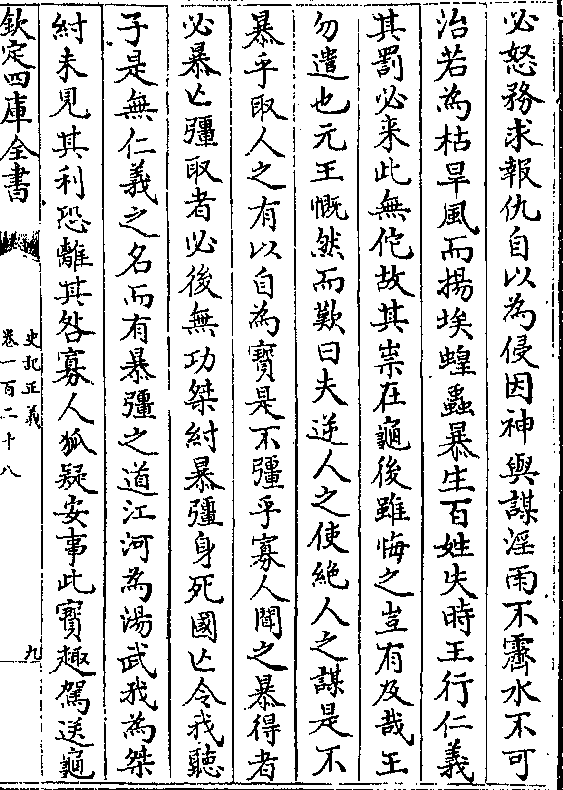 必怒務求報仇自以為侵因神與謀淫雨不霽水不可
治若為枯旱風而揚埃蝗蟲暴生百姓失時王行仁義
其罰必来此無佗故其祟在龜後雖悔之豈有及哉王
勿遣也元王慨然而歎曰夫逆人之使絶人之謀是不
暴乎取人之有以自為寳是不彊乎寡人聞之暴得者
必暴亡彊取者必後無功桀紂暴彊身死國亡今我聽
子是無仁義之名而有暴彊之道江河為湯武我為桀
紂未見其利恐離其咎寡人狐疑安事此寳趣駕送龜
欽定四庫全書
史記正義
卷一百二十八
九